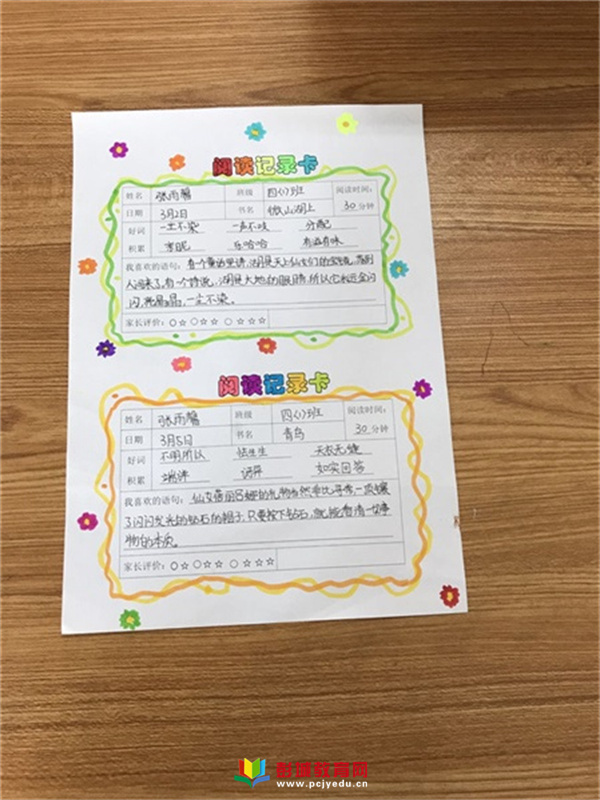 阅读记录卡
姓名 张雨馨 班级 四(7)班 阅读时间:
日期 3月2日 书名 微山湖上 30分钟
好词 一尘不染 一声不吱 分配
积累 亲昵 乐哈哈 有滋有味
我喜欢的语句: 有个童话里讲,湖是天上仙女们的宝镜,落到
人间来了,有一个诗说,湖是大地的眼睛,所以它永远金闪
闪,亮晶晶,一尘不染。
家长评价: ○☆ ○☆☆ ○☆☆☆
阅读记录卡
姓名 张雨馨 班级 四(7)班 阅读时间:
日期 3月5日 书名 青鸟 30分钟
好词 不明所以 怯生生 天衣无缝
积累 端详 如实回答
我喜欢的语句: 仙女蓓丽吕娜的礼物当然要比
了闪闪发光的钻石的帽子.只要按下钻石,就能看清一切事
物的本质。
家长评价: ○☆ ○☆☆ ○☆☆☆
彭课教育网
www.pcjyedu.cn